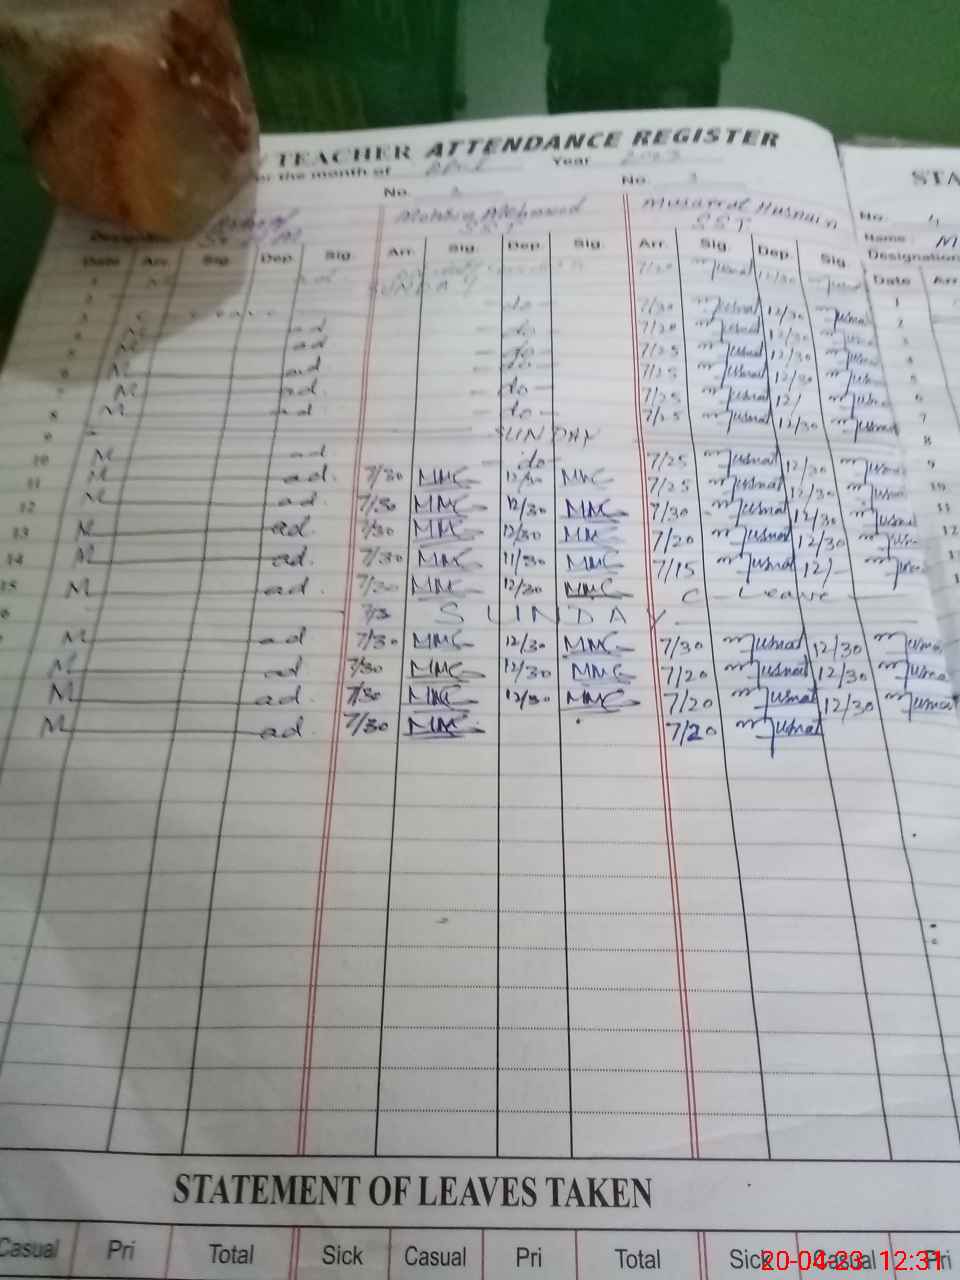 TEACHER ATTENDANCE REGISTER
the month of April Year 2023
No. 2 No. 3 STA
Mohsin Mehmood Musarrat Husnain No. 4
SST SST Name: M
Designation
Date Arr. Sig. Dep. Sig. Arr. Sig. Dep. Sig. Arr. Sig. Dep. Sig. Date Arr
1 7/20 Musnat 12/30 Musnat
2 SUNDAY 1
3 do 7/30 Musnat 12/30 Musnat 2
M ad do 7/20 Musnat 12/30 Musnat 3
M ad do 7/25 Musnat 12/30 Musnat 4
6 M ad do 7/25 Musnat 12/30 Musnat 5
7 M ad do 7/25 Musnat 12/ Musnat 6
8 M ad do 7/25 Musnat 12/30 Musnat 7
9 SUNDAY 8
10 M ad do 7/25 Musnat 12/30 Musnat 9
11 M ad. 7/30 MMC 12/30 MMC 7/25 Musnat 12/30 Musnat 10
12 M ad 7/30 MMC 12/30 MMC 7/30 Musnat 12/30 Musnat 11
13 M ad 7/30 MMC 12/30 MMC 7/20 Musnat 12/30 Musnat 12
14 M ad. 7/30 MMC 11/30 MMC 7/15 Musnat 12/- Musnat
15 M ad. 7/30 MMC 12/30 MMC C - Leave
7/3 SUNDAY
M ad 7/30 MMC 12/30 MMC 7/30 Musnat 12/30 Musna
M ad 7/30 MMC 12/30 MMC 7/20 Musnat 12/30 Musna
M ad. 7/30 MMC 12/30 MMC 7/20 Musnat 12/30 Musnat
M ad. 7/30 MMC 7/20 Musnat
STATEMENT OF LEAVES TAKEN
Casual Pri Total Sick Casual Pri Total Sick Casual Pri
20-04-23 12:31